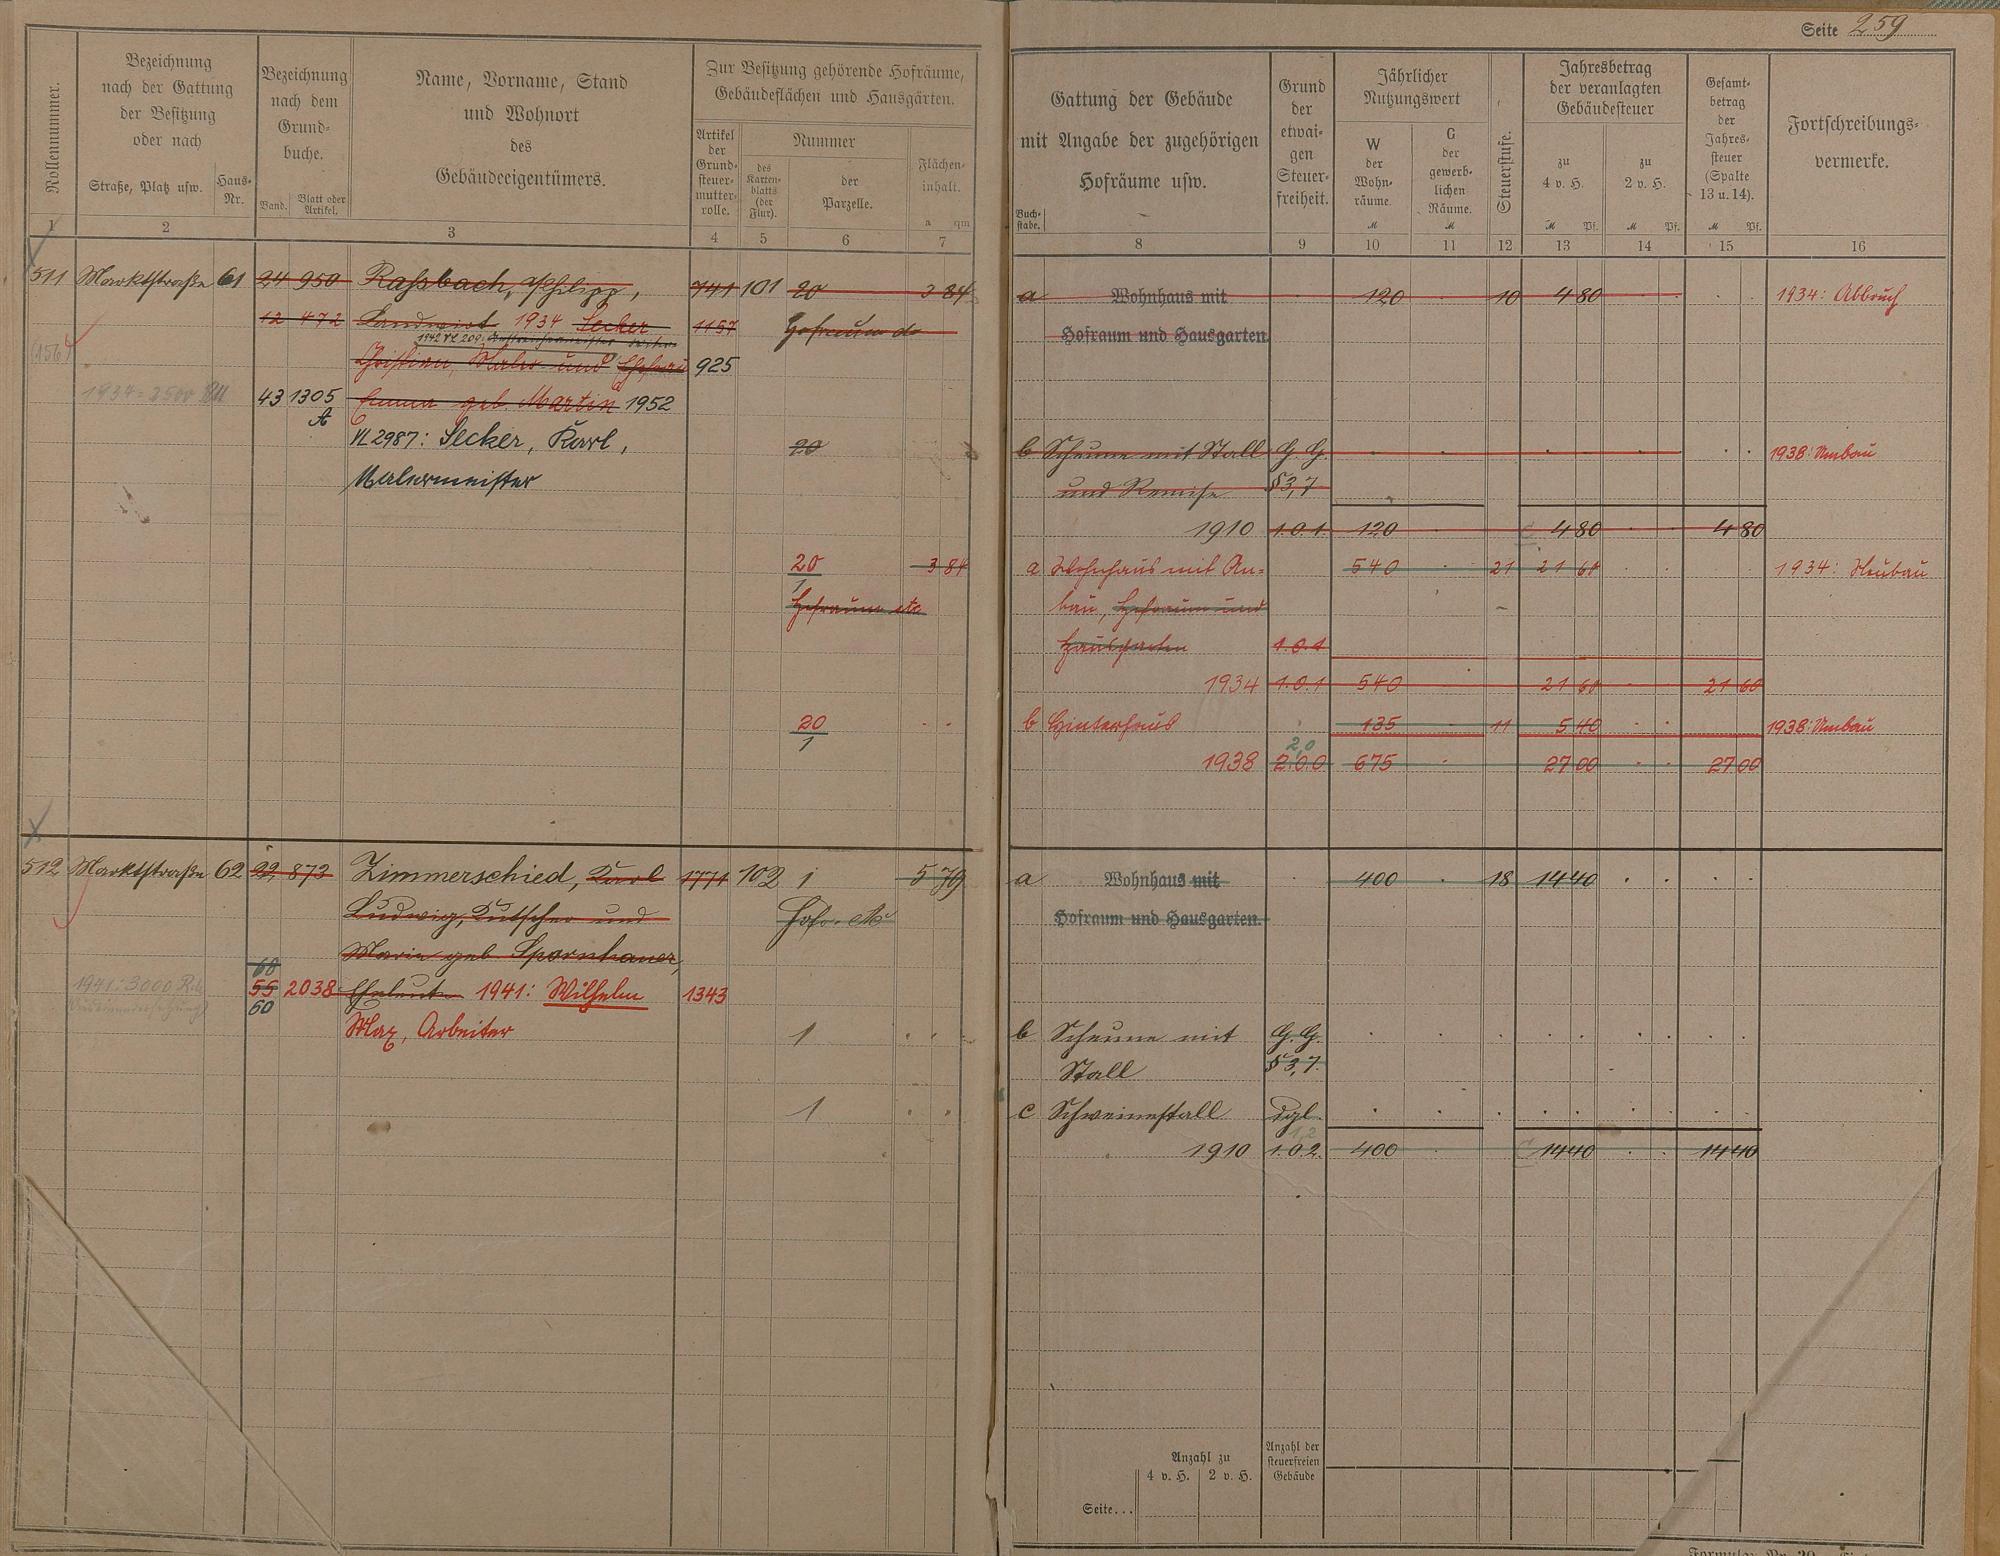 Seite 259
Rollennummer.
Bezeichnung
nach der Gattung
der Besitzung
oder nach
Straße, Platz usw.
Haus-
Nr.
Bezeichnung
nach dem
Grund-
buche.
Band.
Blatt oder
Artikel.
Name, Vorname, Stand
und Wohnort
des
Gebäudeeigentümers.
Zur Besitzung gehörende Hofräume,
Gebäudeflächen und Hausgärten.
Artikel
der
Grund-
steuer-
mutter-
rolle.
Nummer
des
Karten-
blatts
(der
Flur).
der
Parzelle.
Flächen-
inhalt.
a qm
1 2 3 4 5 6 7
511 Marktstraße 61 24 950 Raßbach, Philipp, 741 101 20 3 84
12 472 Landwirt 1934 Secker 1157 Hofraum
Christian, Maler und Ehefrau 925
1934 = 3500
43 1305 Emma geb. Martin 1952
A
VL 2987: Secker, Karl, 20
Malermeister
20 3 84
1
Hofraum etc
20
1
512 Marktstraße 62 22 873 Zimmerschied, Karl 1771 102 1 5 79
Ludwig, Kutscher und Hofr. etc
Marie geb. Spornhauer,
60
55 2038 Eheleute 1941: Wilhelm 1343
60
1941: 3000
Max, Arbeiter 1
1
Gattung der Gebäude
mit Angabe der zugehörigen
Hofräume usw.
Buch-
stabe.
Grund
der
etwai-
gen
Steuer-
freiheit.
Jährlicher
Nutzungswert
W
der
Wohn-
räume.
M
G
der
gewerb-
lichen
Räume.
M
Steuerstufe.
Jahresbetrag
der veranlagten
Gebäudesteuer
zu
4 v. H.
M Pf.
zu
2 v. H.
M Pf.
Gesamt-
betrag
der
Jahres-
steuer
(Spalte
13 u. 14).
M Pf.
Fortschreibungs-
vermerke.
8 9 10 11 12 13 14 15 16
a Wohnhaus mit 120 10 4 80 1934: Abbruch
Hofraum und Hausgarten.
b Scheune mit Stall G. G. 1938: Umbau
und Remise § 3,7
1910 1.0.1. 120 4 80 4 80
a Wohnhaus mit An- 540 21 21 60 1934: Neubau
bau, Hofraum und
Hausgarten 1.0.1
1934 1.0.1 540 21 60 21 60
b Hinterhaus 135 11 5 40 1938: Umbau
2,0
1938 2.0.0 675 27 00 27 00
a Wohnhaus mit 400 18 14 40
Hofraum und Hausgarten.
b Scheune mit G. G.
Stall § 3,7.
c Schweinestall dgl.
1,2
1910 1.0.2. 400 14 40 14 40
Anzahl zu
4 v. H. 2 v. H.
Anzahl der
steuerfreien
Gebäude
Seite...